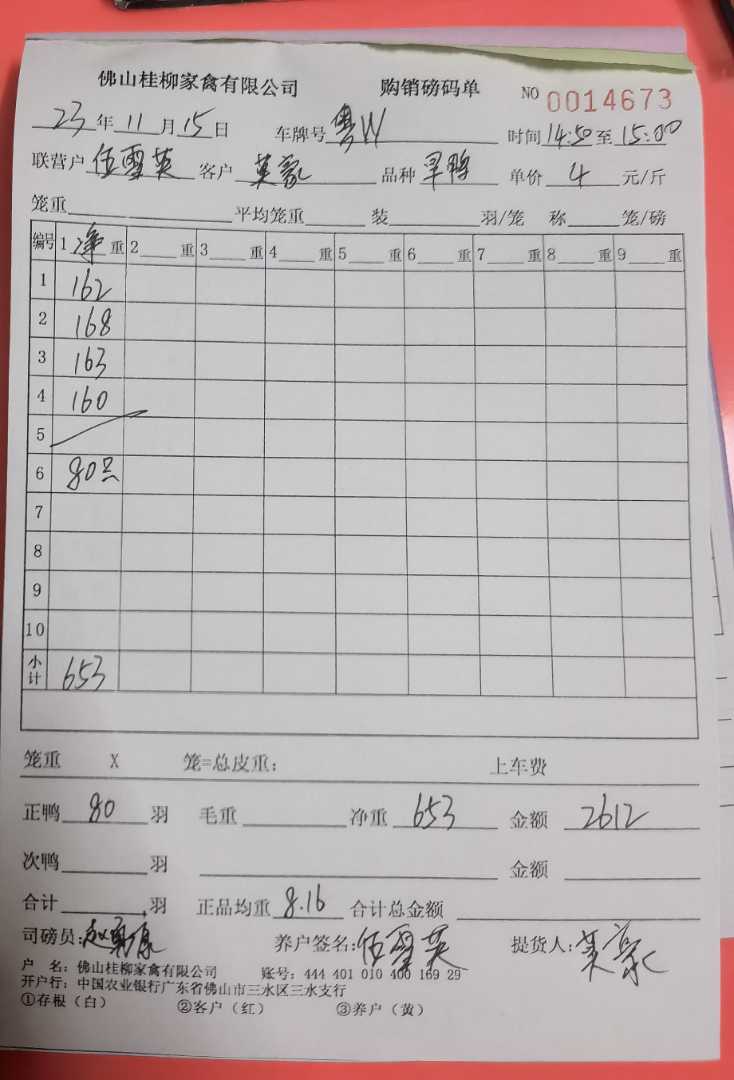 佛山桂柳家禽有限公司 购销磅码单 NO 0014673
23年11月15日 车牌号 粤W 时间 14:50 至 15:00
联营户 伍雪英 客户 英豪 品种 旱鸭 单价 4 元/斤
笼重 平均笼重 装 羽/笼 称 笼/磅
编号 1 净 重 2 重 3 重 4 重 5 重 6 重 7 重 8 重 9 重
1 162
2 168
3 163
4 160
5
6 80只
7
8
9
10
小计 653
笼重 X 笼=总皮重: 上车费
正鸭 80 羽 毛重 净重 653 金额 2612
次鸭 羽 金额
合计 羽 正品均重 8.16 合计总金额
司磅员: 养户签名: 伍雪英 提货人: 英豪
户 名: 佛山桂柳家禽有限公司 账号: 444 401 010 400 169 29
开户行: 中国农业银行广东省佛山市三水区三水支行
①存根（白） ②客户（红） ③养户（黄）